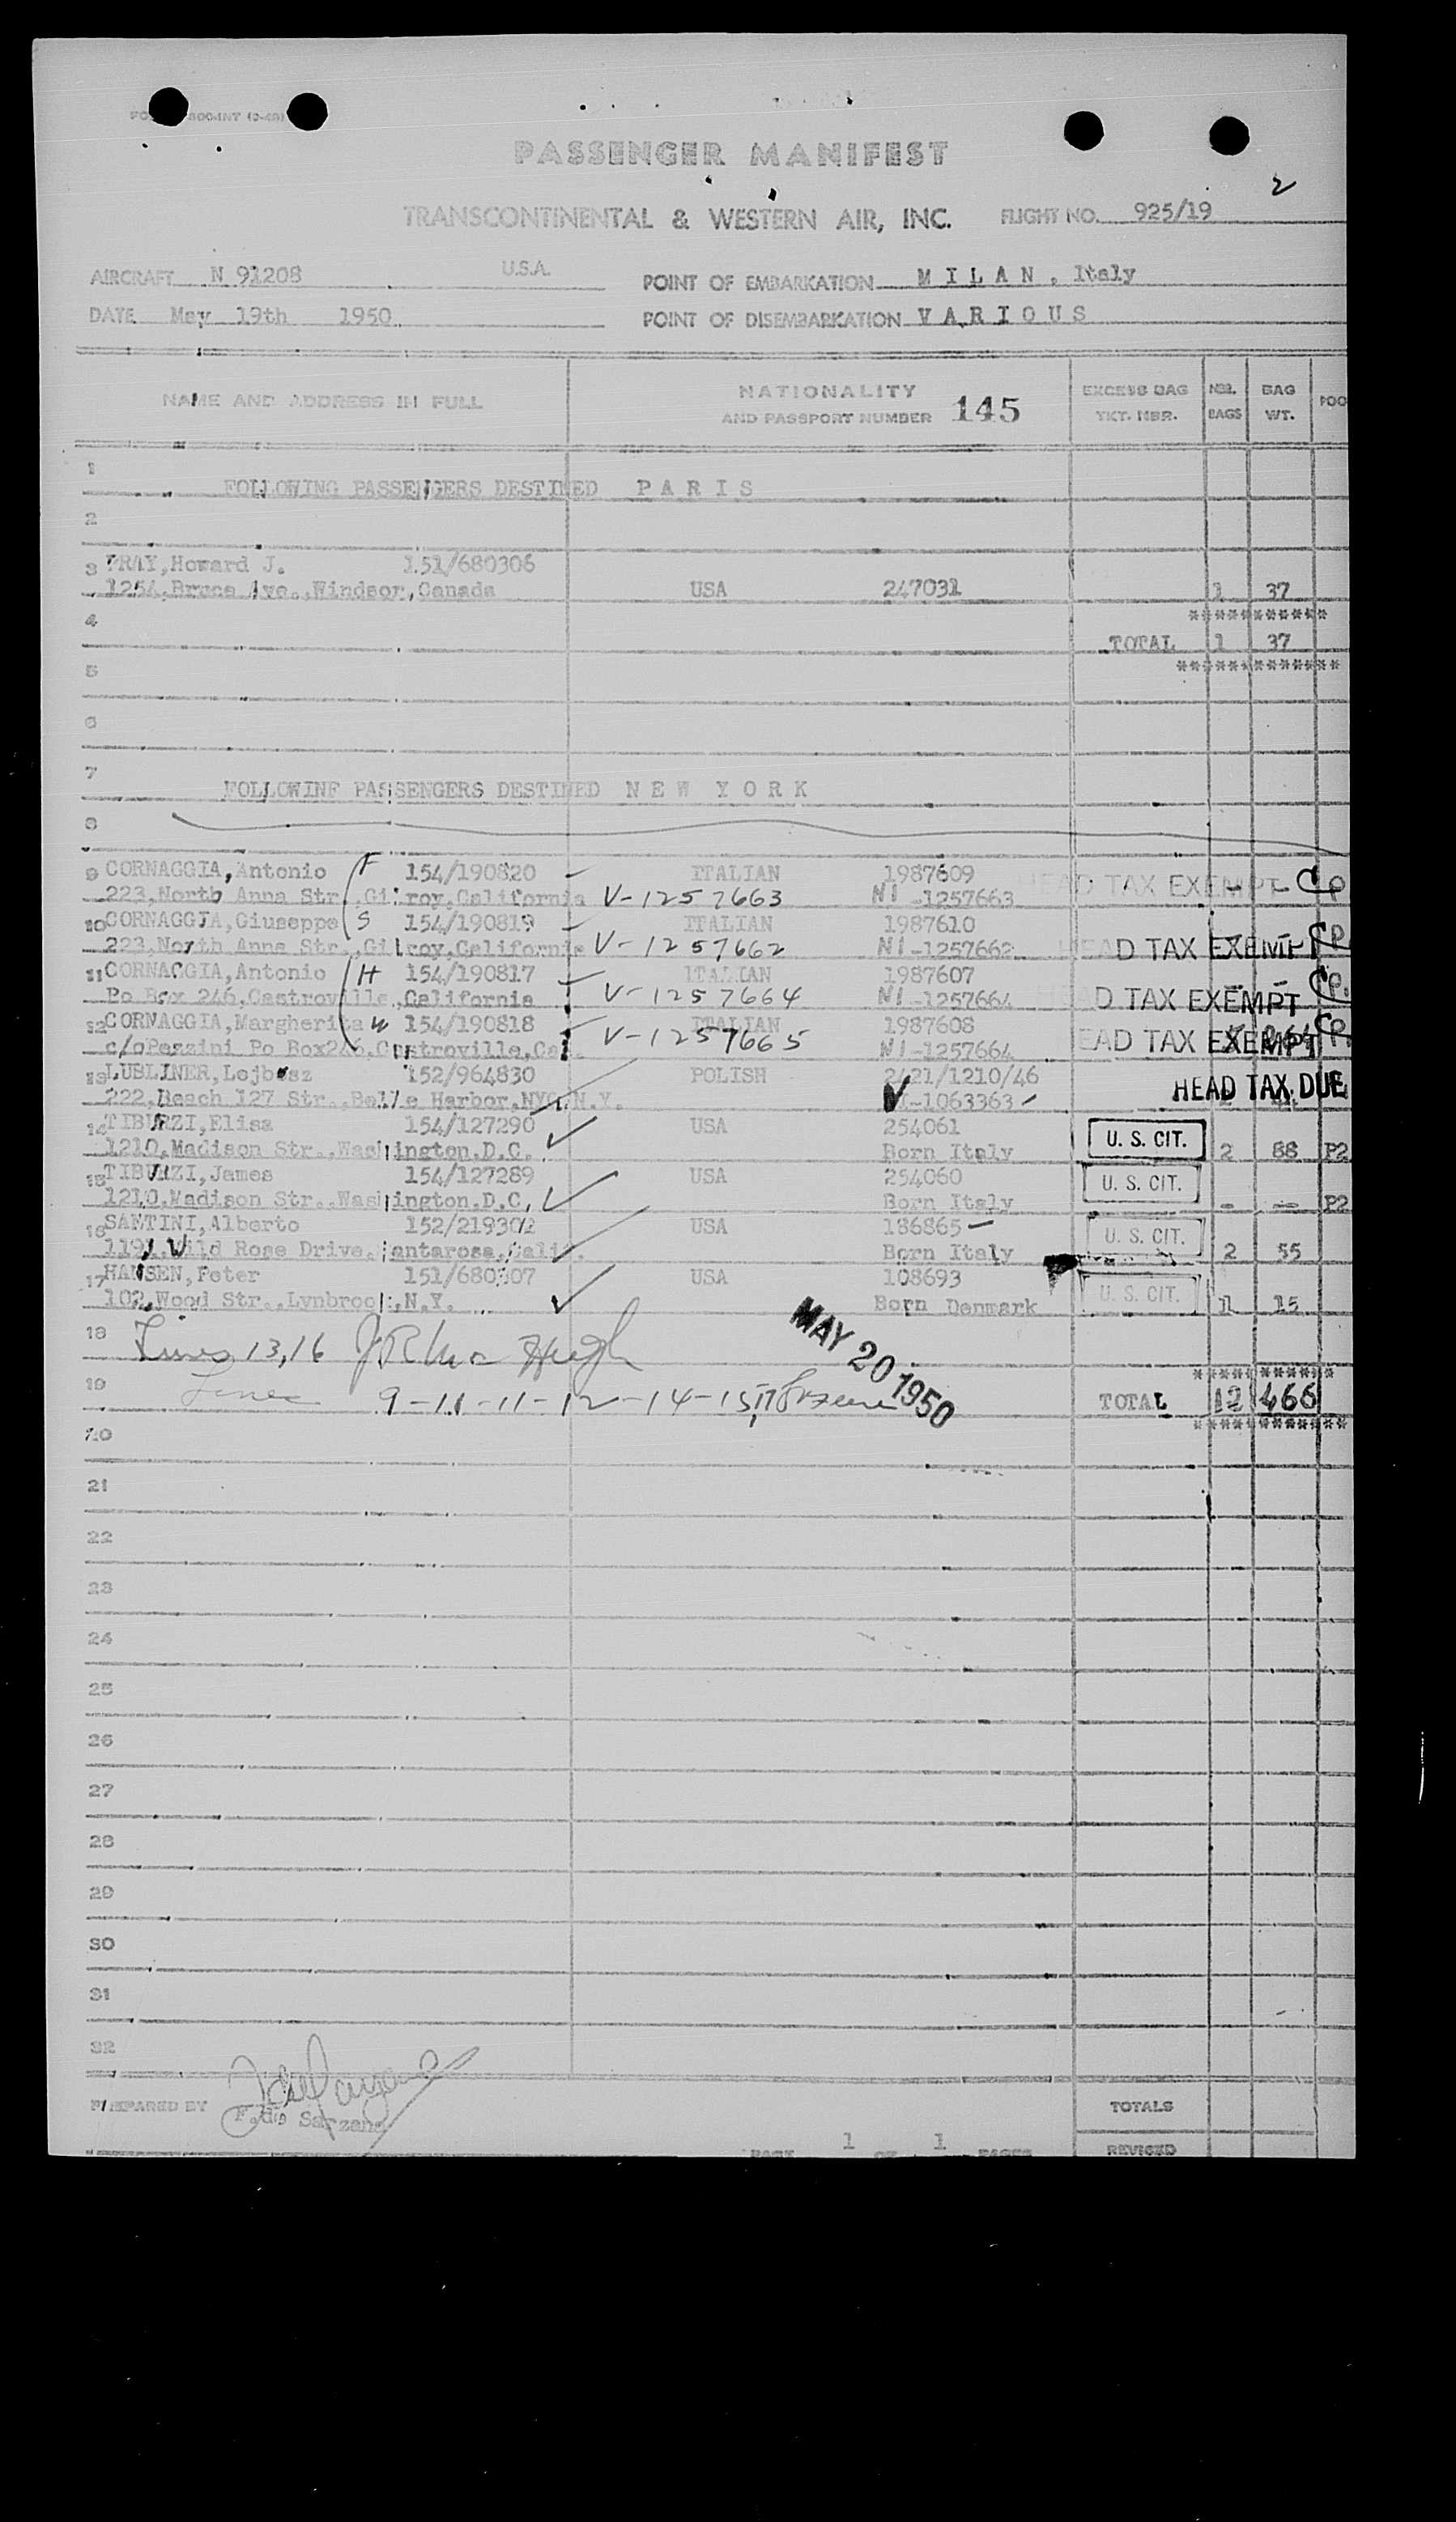 PASSENGER MANIFEST
2
TRANSCONTINENTAL & WESTERN AIR, INC. FLIGHT NO. 925/19
AIRCRAFT N 91208 U.S.A. POINT OF EMBARKATION M I L A N , Italy
DATE May 19th 1950 POINT OF DISEMBARKATION V A R I O U S
NAME AND ADDRESS IN FULL NATIONALITY AND PASSPORT NUMBER 145 EXCESS BAG TKT. NBR. NBR. BAGS BAG WT.
1 FOLLOWING PASSENGERS DESTINED P A R I S
2
3 PRAY,Howard J. 151/680306
1254,Bruce Ave.,Windsor,Canada USA 247031 1 37
************
4 TOTAL 1 37
5 **************
6
7 FOLLOWINF PASSENGERS DESTINED N E W Y O R K
8
9 CORNAGGIA,Antonio F 154/190820 ITALIAN 1987609
223,North Anna Str.,Gilroy,California V-1257663 NI-1257663 HEAD TAX EXEMPT Cp
10 CORNAGGIA,Giuseppe S 154/190819 ITALIAN 1987610
223,North Anna Str.,Gilroy,California V-1257662 NI-1257662 HEAD TAX EXEMPT Cp
11 CORNAGGIA,Antonio H 154/190817 ITALIAN 1987607
Po Box 246,Castroville,California V-1257664 NI-1257664 HEAD TAX EXEMPT Cp.
12 CORNAGGIA,Margherita W 154/190818 ITALIAN 1987608
c/oPezzini Po Box246,Castroville,Cal. V-1257665 NI-1257664 HEAD TAX EXEMPT Cp.
13 LUBLINER,Lejbusz 152/964830 POLISH 2421/1210/46
222,Beach 127 Str.,Belle Harbor,NYC,N.Y. -1063363 HEAD TAX DUE
14 TIBURZI,Elisa 154/127290 USA 254061
1210,Madison Str.,Washington,D.C. Born Italy U. S. CIT. 2 88 P2
15 TIBURZI,James 154/127289 USA 254060
1210,Madison Str.,Washington,D.C. Born Italy U. S. CIT. - - P2
16 SANTINI,Alberto 152/219302 USA 186865
1191,Wild Rose Drive,Santarosa,Calif. Born Italy U. S. CIT. 2 55
17 HANSEN,Peter 151/680307 USA 108693
102,Wood Str.,Lynbrook,N.Y. Born Denmark U. S. CIT. 1 15
18 Lines 13,16
MAY 20 1950
************
19 Lines 9-11-11-12-14-15,17 TOTAL 12 466
**************
20
21
22
23
24
25
26
27
28
29
30
31
32
PREPARED BY F.de Sarzana TOTALS
PAGE 1 OF 1 PAGES REVISED